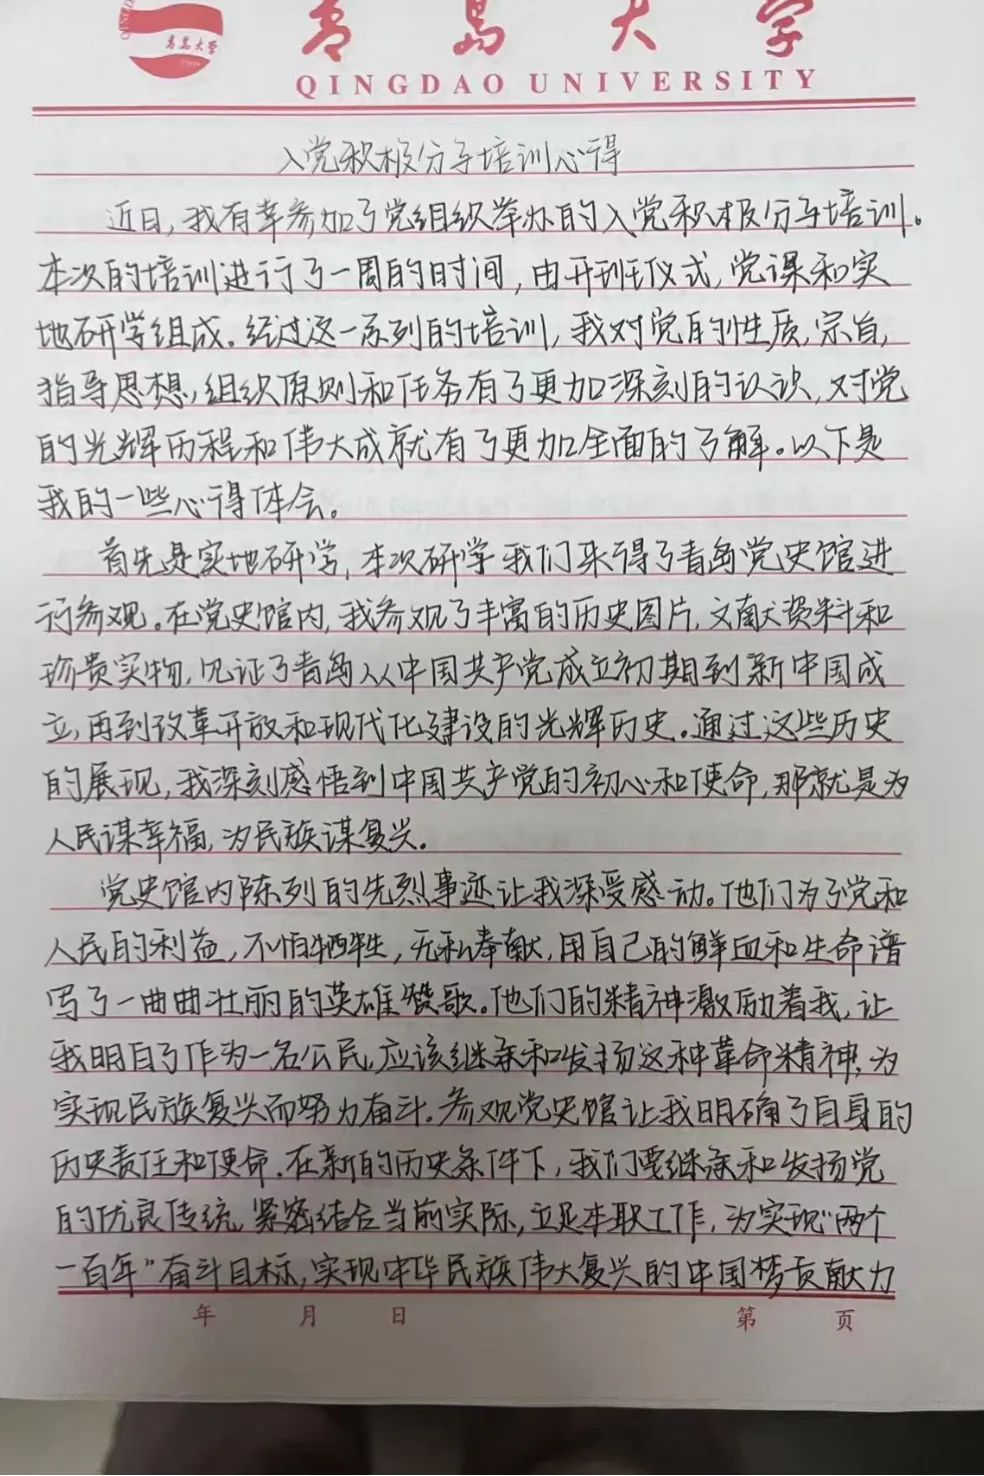 青岛大学
青岛大学
QINGDAO UNIVERSITY
入党积极分子培训心得
近日,我有幸参加了党组织举办的入党积极分子培训。
本次的培训进行了一周的时间,由开班仪式,党课和实
地研学组成。经过这一系列的培训,我对党的性质,宗旨,
指导思想,组织原则和任务有了更加深刻的认识,对党
的光辉历程和伟大成就有了更加全面的了解。以下是
我的一些心得体会。
首先是实地研学,本次研学我们来得了青岛党史馆进
行参观。在党史馆内,我参观了丰富的历史图片,文献资料和
珍贵实物,见证了青岛从中国共产党成立初期到新中国成
立,再到改革开放和现代化建设的光辉历史。通过这些历史
的展现,我深刻感悟到中国共产党的初心和使命,那就是为
人民谋幸福,为民族谋复兴。
党史馆内陈列的先烈事迹让我深受感动。他们为了党和
人民的利益,不怕牺牲,无私奉献,用自己的鲜血和生命谱
写了一曲曲壮丽的英雄赞歌。他们的精神激励着我,让
我明白了作为一名公民,应该继承和发扬这种革命精神,为
实现民族复兴而努力奋斗。参观党史馆让我明确了自身的
历史责任和使命。在新的历史条件下,我们要继承和发扬党
的优良传统,紧密结合当前实际,立足本职工作,为实现"两个
一百年"奋斗目标,实现中华民族伟大复兴的中国梦贡献力
年 月 日 第 页